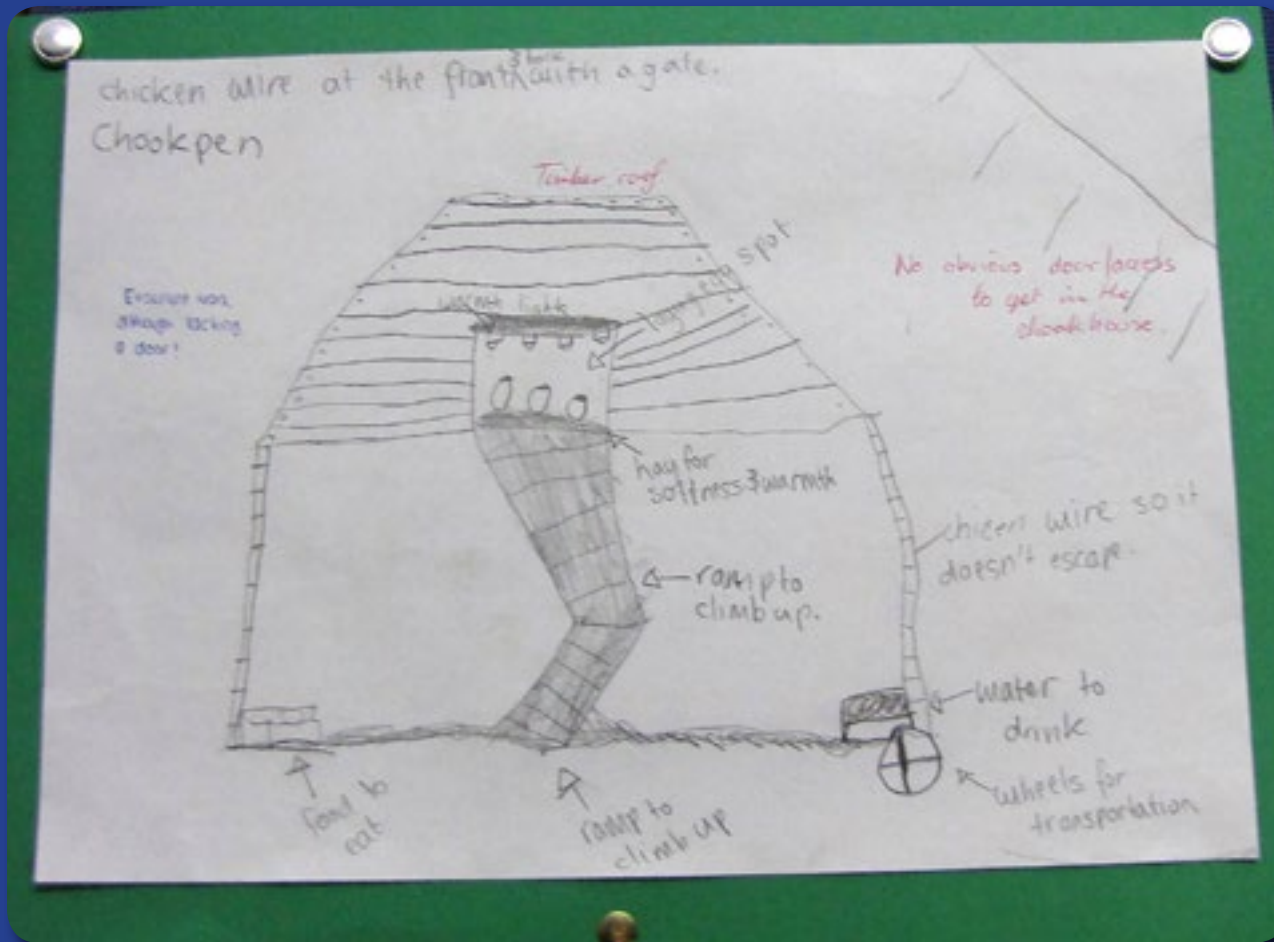 chicken wire at the front with a gate.
Chookpen
Timber roof
spot
warm lights
No obvious door/access
to get in the
chook house.
lacking
a door!
hay for
softness & warmth
chicen wire so it
doesn't escape.
ramp to
climb up.
water to
drink
wheels for
transportation
food to
eat
ramp to
climb up